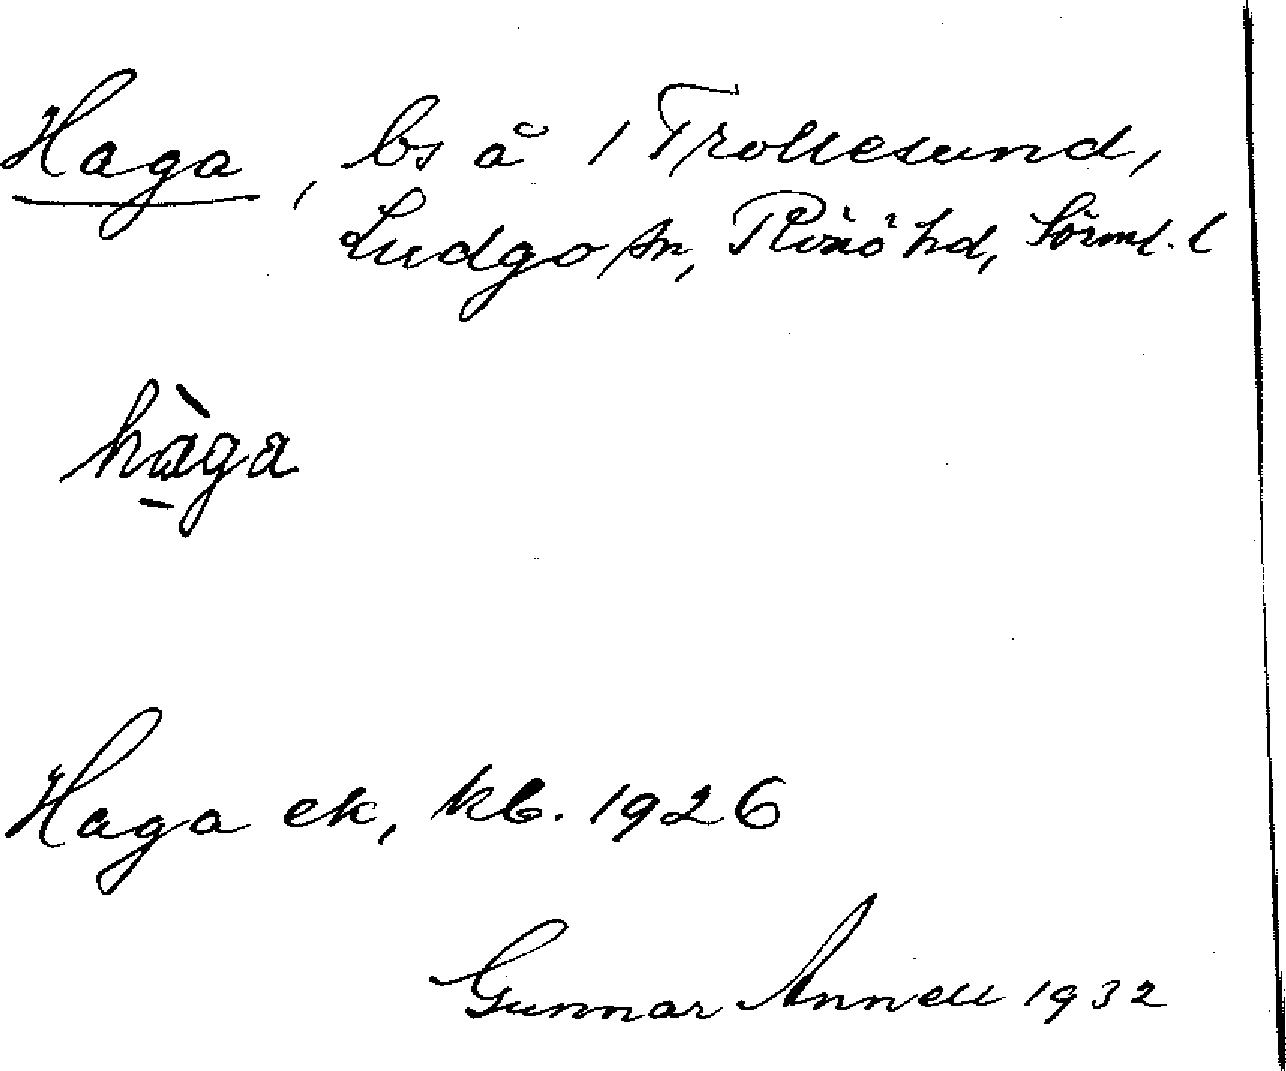 Haga, bs å 1 Trollesund,
Ludgo sn, Rönö hd, Sörml. l
hàga
Haga ek, kb. 1926
Gunnar Annell 1932